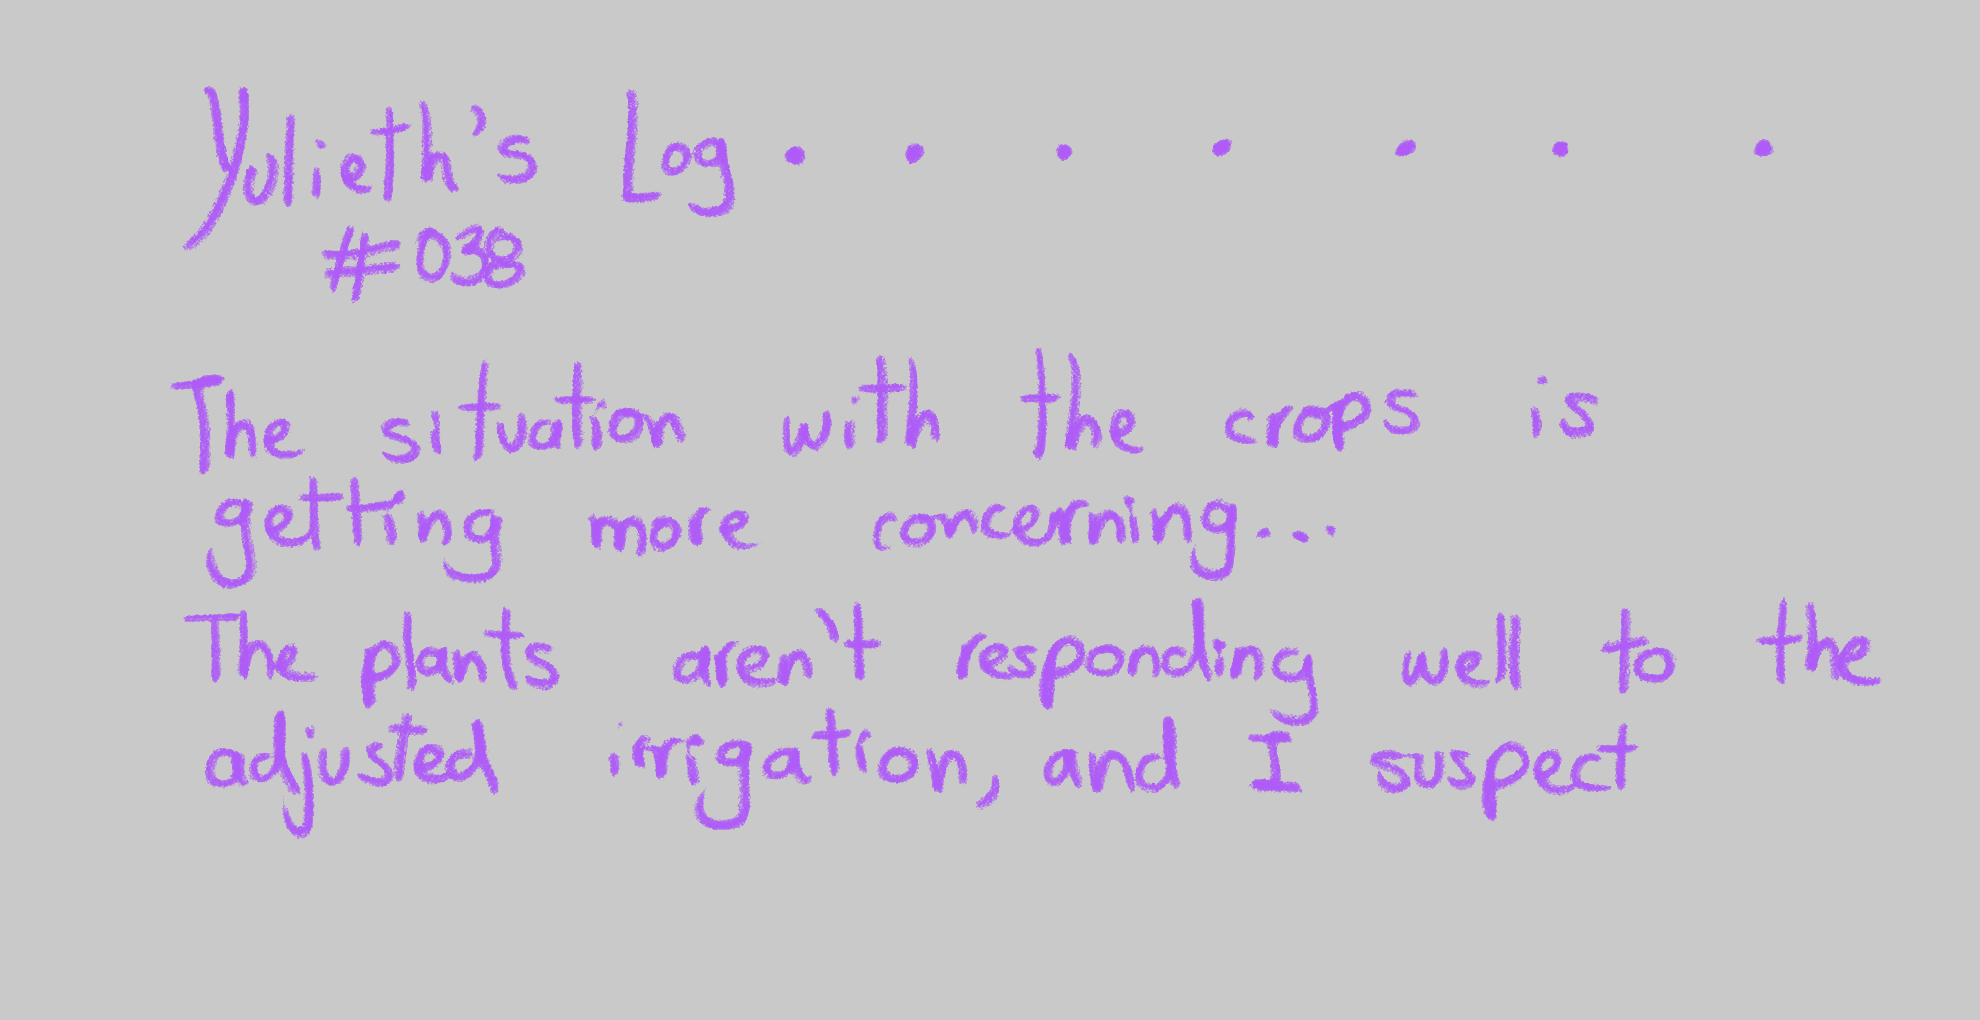 Yulieth's Log . . . . . . .
#038
The situation with the crops is
getting more concerning...
The plants aren't responding well to the
adjusted irrigation, and I suspect